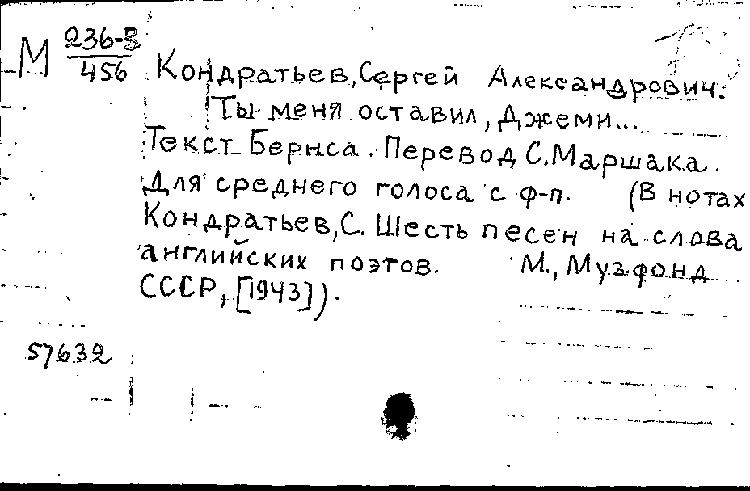 М 236-8
456
Кондратьев, Сергей Александрович.
Ты меня оставил, Джеми...
Текст Бернса. Перевод С. Маршака.
Для среднего голоса с ф-п. (В нотах
Кондратьев, С. Шесть песен на слова
английских поэтов. М., Музфонд
СССР, [1943]).
57632